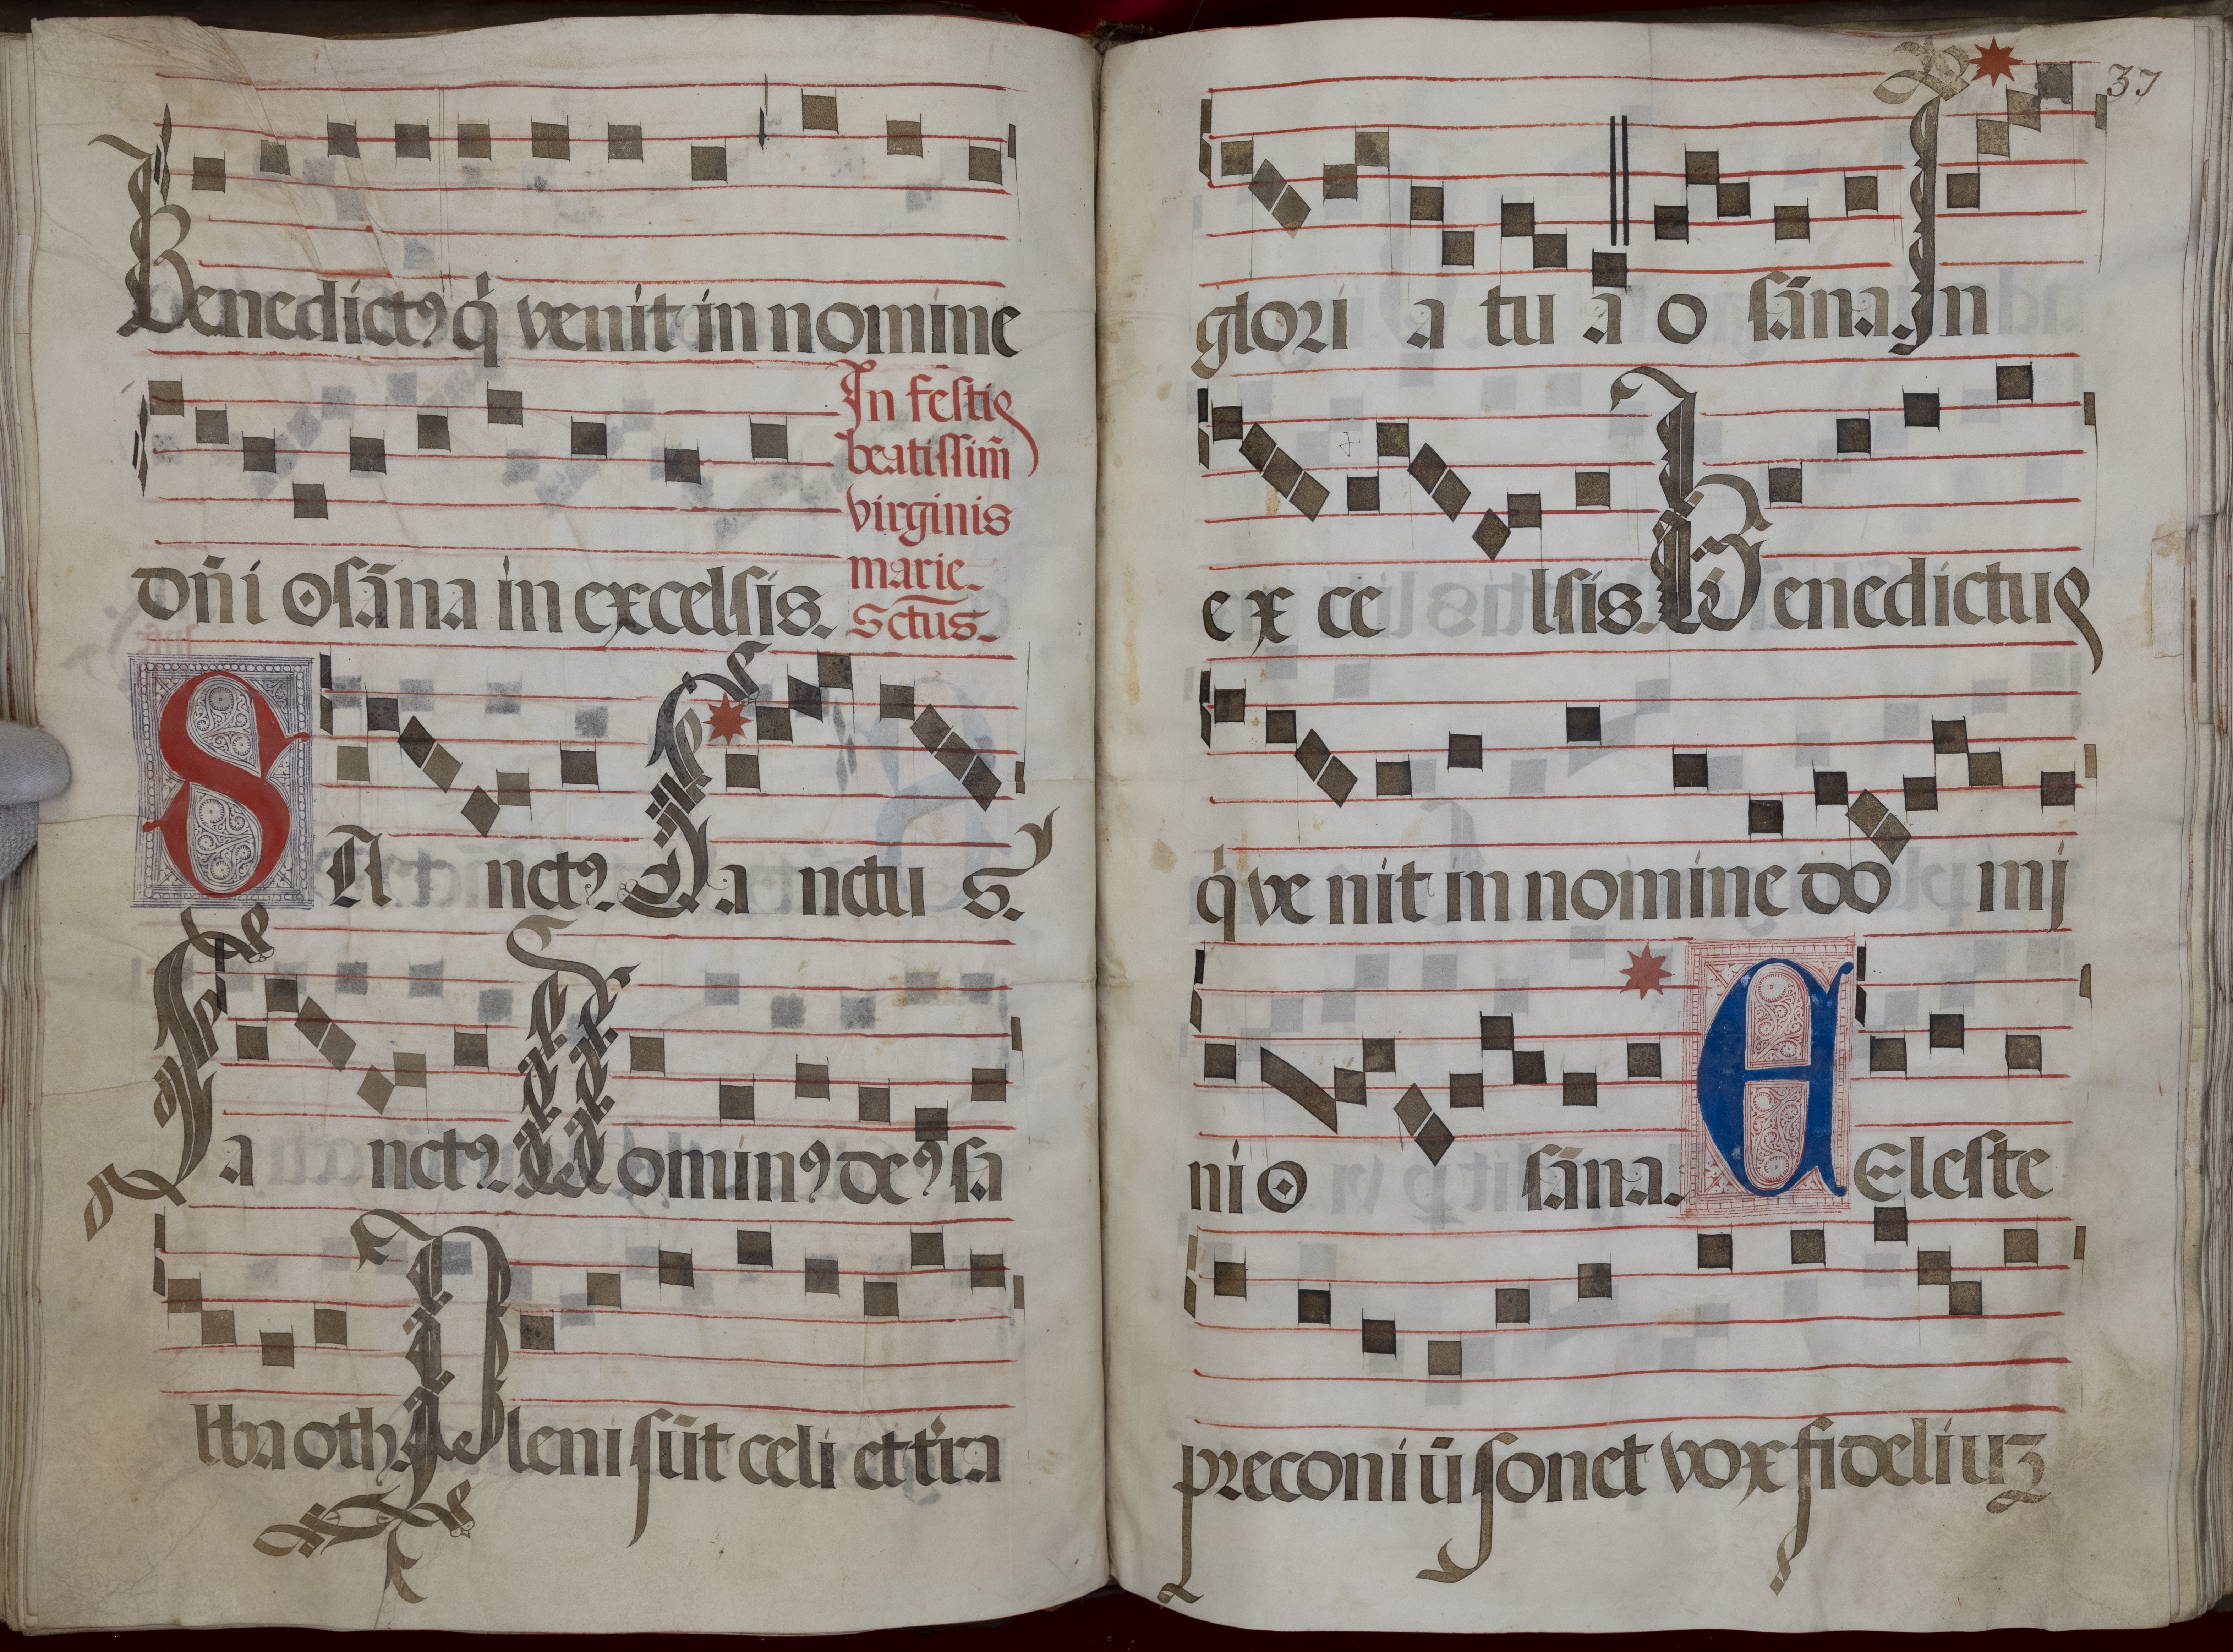 Benedictꝰ q̇ venit in nomine
dn̄i osāna in excelsis.
In festis
beatissim̄
virginis
marie.
Sctūs.
SAnctꝰ. Sanctus.
Sanctꝰ. Dominꝰ deꝰ sa
bbaoth. Pleni sūt celi et t'ra
37
gloria tua osāna. In
excelsis. Benedictus
q̇ venit in nomine domj
ni osāna. CEleste
preconiū sonet vox fideliuꝫ